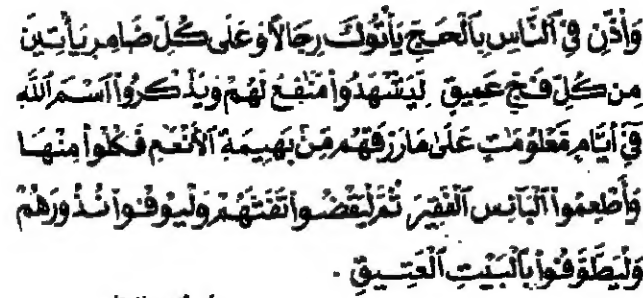 وَأَذِّن فِي ٱلنَّاسِ بِٱلْحَجِّ يَأْتُوكَ رِجَالًا وَعَلَىٰ كُلِّ ضَامِرٍ يَأْتِينَ
مِن كُلِّ فَجٍّ عَمِيقٍ لِّيَشْهَدُوا۟ مَنَٰفِعَ لَهُمْ وَيَذْكُرُوا۟ ٱسْمَ ٱللَّهِ
فِىٓ أَيَّامٍ مَّعْلُومَٰتٍ عَلَىٰ مَا رَزَقَهُم مِّنۢ بَهِيمَةِ ٱلْأَنْعَٰمِ فَكُلُوا۟ مِنْهَا
وَأَطْعِمُوا۟ ٱلْبَآئِسَ ٱلْفَقِيرَ ثُمَّ لْيَقْضُوا۟ تَفَثَهُمْ وَلْيُوفُوا۟ نُذُورَهُمْ
وَلْيَطَّوَّفُوا۟ بِٱلْبَيْتِ ٱلْعَتِيقِ .